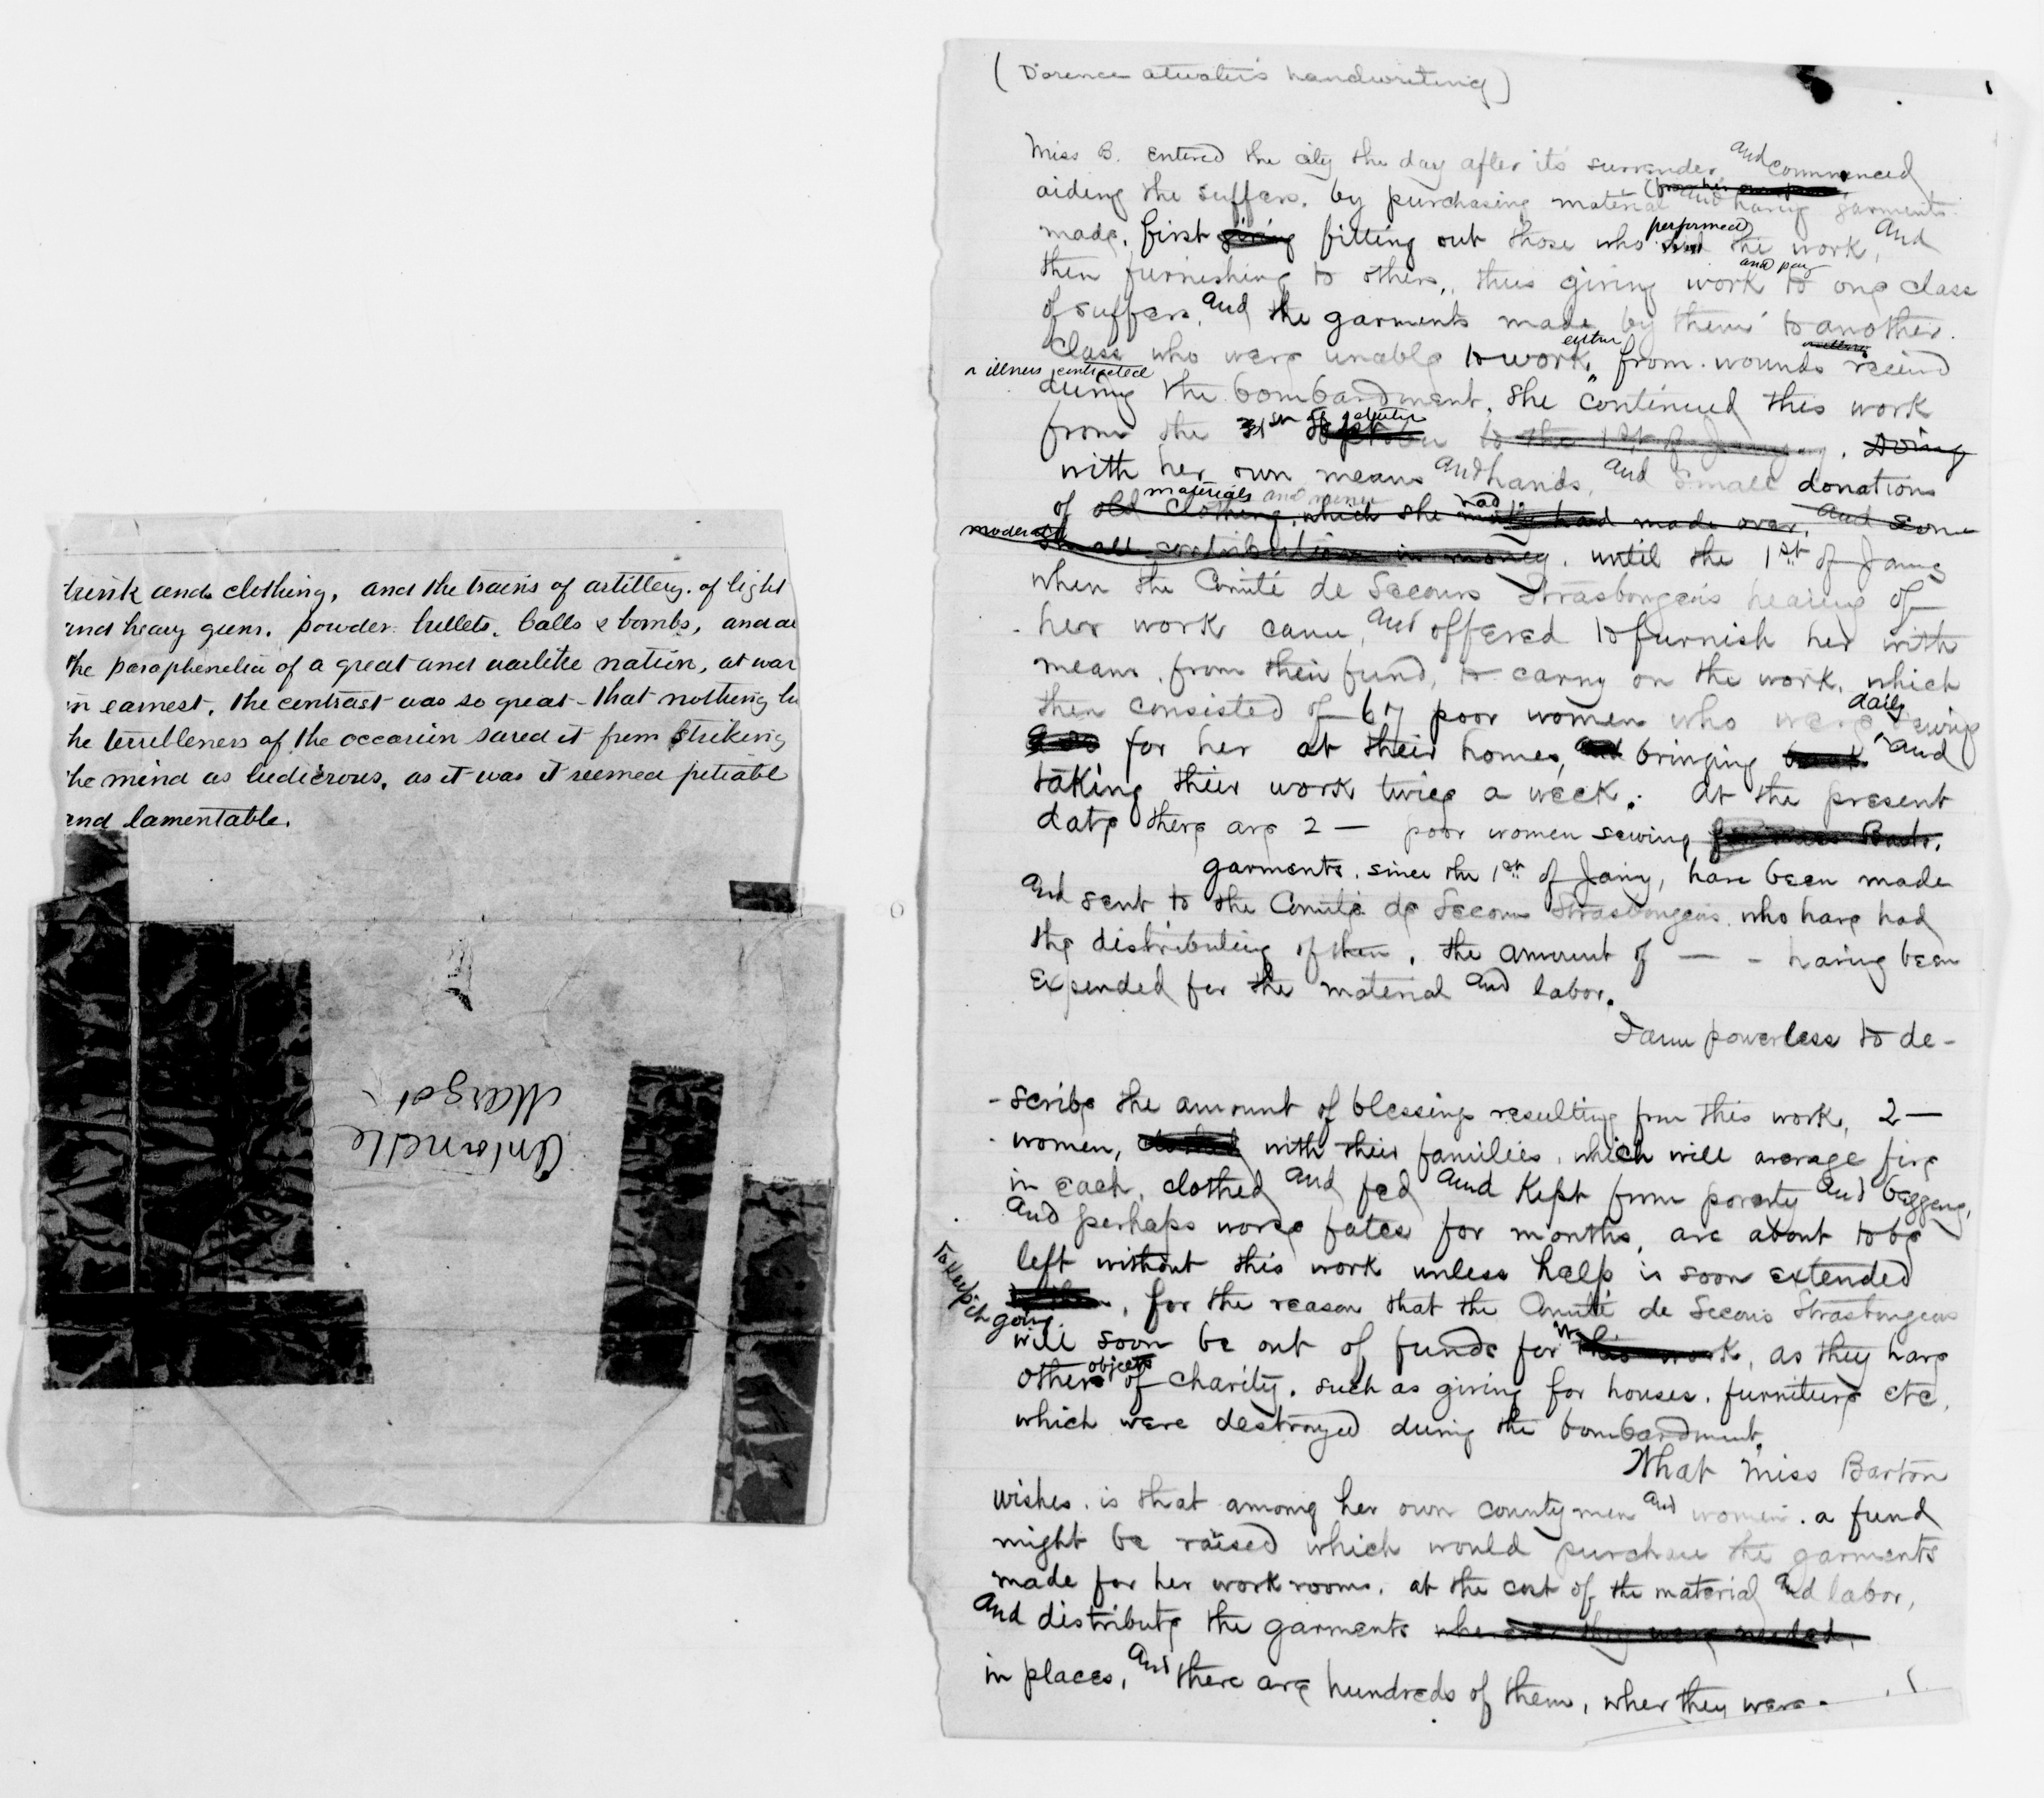 trunk and clothing, and the trains of artillery. of light
and heavy guns. powder bullets, balls & bombs, and al
the paraphenelia of a great and warlike nation, at war
in earnest, the contrast was so great - that nothing bu
the terribleness of the occasion saved it from striking
the mind as ludicrous, as it was it seemed pitiabl
and lamentable.
Antoinette
Margot
(Dorence atwater's handwriting)
Miss B. Entered the city the day after it's surrender, and commenced
aiding the suffers. by purchasing material and having garments
made. first giving fitting out those who performed the work, and
then furnishing to others,, thus giving work and pay to one class
of suffers, and the garments made by them to another
class who were unable to work, either from wounds received
or illness contracted
during the bombardment. She continued this work
from the to the 1st of January. doing
with her own means and hands, and small donations
of old clothing, materials and money which she had made over, and some
moderate small contributions in money. until the 1st of Jany
when the Comité de Secours Strasbourgeois hearing of
her work came, and offered to furnish her with
means, from their fund, to carry on the work, which
then consisted of 67 poor women who were daily sewing
for her at their homes, and bringing back and
taking their work twice a week. At the present
date there are 2 — poor women sewing
garments, since the 1st of Jany, have been made
and sent to the Comité de Secours Strasbourgeois who have had
the distributing of them, the amount of — - having been
Expended for the material and labor.
I am powerless to de-
-scribe the amount of blessings resulting from this work, 2 —
women, clothed with their families, which will average five
in each, clothed and fed and kept from poverty and begging,
and perhaps worse fates for months, are about to be
left without this work unless help is soon extended
to keep it going
, for the reason that the Comité de Secours Strasbourgeois
will soon be out of funds for this work, as they have
other objects of charity. such as giving for houses, furniture etc,
which were destroyed during the bombardment.
What Miss Barton
wishes, is that among her own countymen and women. a fund
might be raised which would purchase the garments
made for her work rooms, at the cost of the material and labor,
and distribute the garments wherever they were needed,
in places, and there are hundreds of them, wher they were